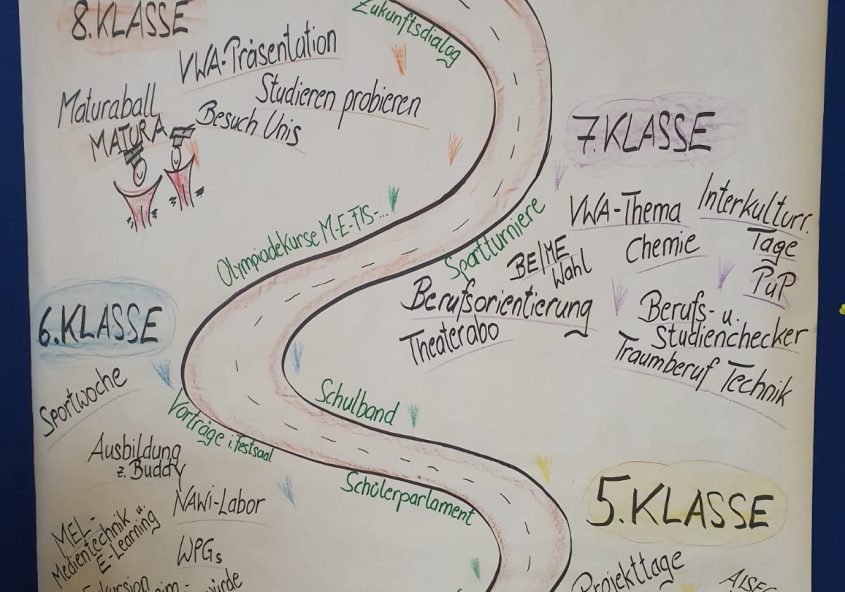 8. KLASSE
Zukunftsdialog
VWA-Präsentation
Studieren probieren
Maturaball
MATURA
Besuch Unis
7. KLASSE
Olympiadekurse M-E-FIS-...
Sportturniere
VWA-Thema
Interkulturr.
Tage
Chemie
PuP
BE/ME
Wahl
Berufsorientierung
Theaterabo
Berufs- u.
Studienchecker
Traumberuf Technik
6. KLASSE
Sportwoche
Schulband
Vorträge i. Festsaal
Schülerparlament
Ausbildung
z. Buddy
NAWi-Labor
MEL-
Medientechnik u
E-Learning
WPGs
Exkursion
5. KLASSE
Projekttage